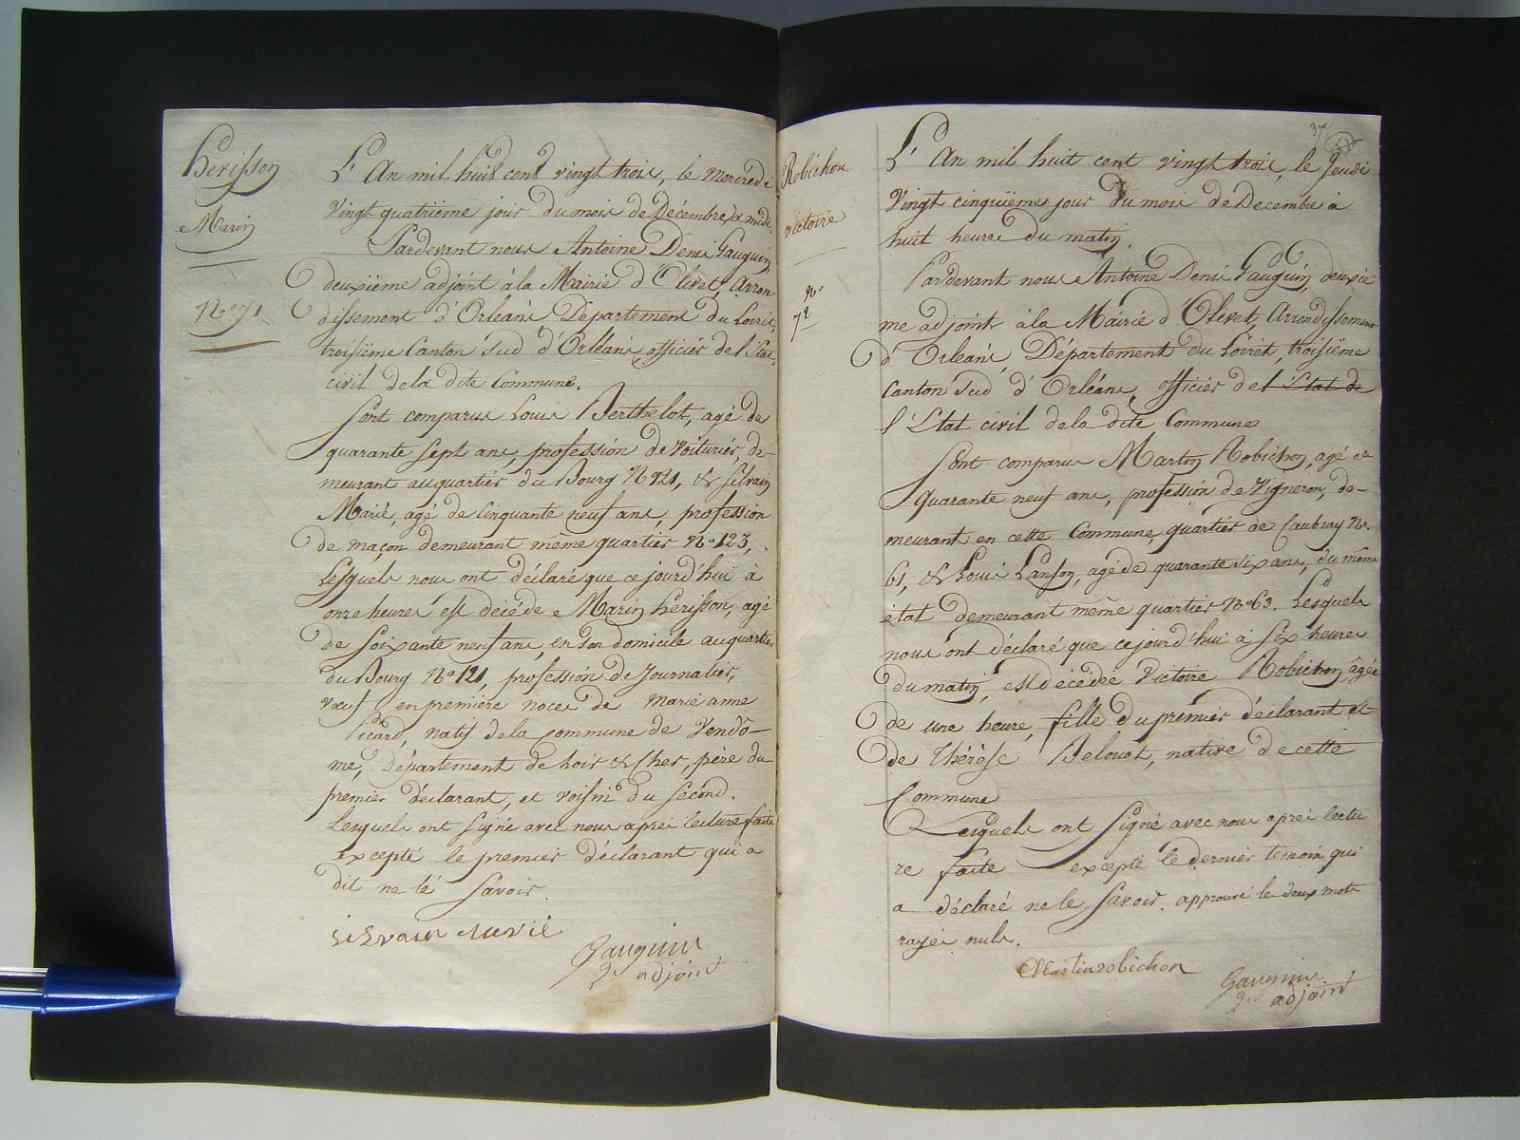 hérisson
Marin
No 71
L'An mil huit cent vingt trois, le mercredi
vingt quatrième jour du mois de Décembre à midi.
Pardevant nous Antoine Denis Gauguin
deuxième adjoint à la Mairie d'Olivet, Arron
dissement d'Orléans Département du Loiret,
troisième Canton sud d'Orléans, officier de l'Etat
civil de la dite Commune.
Sont comparus Louis Berthelot, agé de
quarante sept ans, profession de voiturier, de-
meurant au quartier du Bourg No 121, & Silvain
Marié, agé de Cinquante neuf ans, profession
de maçon demeurant même quartier No 123,
Lesquels nous ont déclaré que ce jourd'hui à
onze heures est décédé Marin hérisson, agé
de soixante neuf ans, en son domicile au quartier
du Bourg No 121, profession de Journalier,
vœuf en première noces de Marie anne
Picard, natif de la commune de Vendô-
me, Département de Loir & Cher, père du
premier déclarant, et voisin du second.
Lesquels ont signé avec nous après lecture faite
excepté le premier déclarant qui a
dit ne lé savoir.
Silvain Marié
Gauguin
2e adjoint
37
Robichon
victoire
No
72
L'An mil huit cent vingt trois, le Jeudi
vingt cinquième jour du mois de Decembre à
huit heures du matin.
Pardevant nous Antoine Denis Gauguin, deuxiè
me adjoint à la Mairie d'Olivet, Arrondissement
d'Orléans, Département du Loiret, troisième
Canton sud d'Orléans, officier de l'Etat de
l'Etat civil de la dite Commune
Sont comparus Martin Robichon, agé de
quarante neuf ans, profession de Vigneron, de-
meurant en cette Commune quartier de Caubray No
61, & Louis Lanson, agé de quarante six ans, du même
état demeurant même quartier No 63. Lesquels
nous ont déclaré que ce jourd'hui à six heures
du matin, est décédée Victoire Robichon, âgée
de une heure, fille du premier déclarant et
de Thérèse Belouet, native de cette
Commune
Lesquels ont signé avec nous après lectu
re faite excepté le dernier témoin qui
a déclaré ne le savoir. approuvé les deux mots
rayés nuls.
Martin robichon
Gauguin
2e adjoint